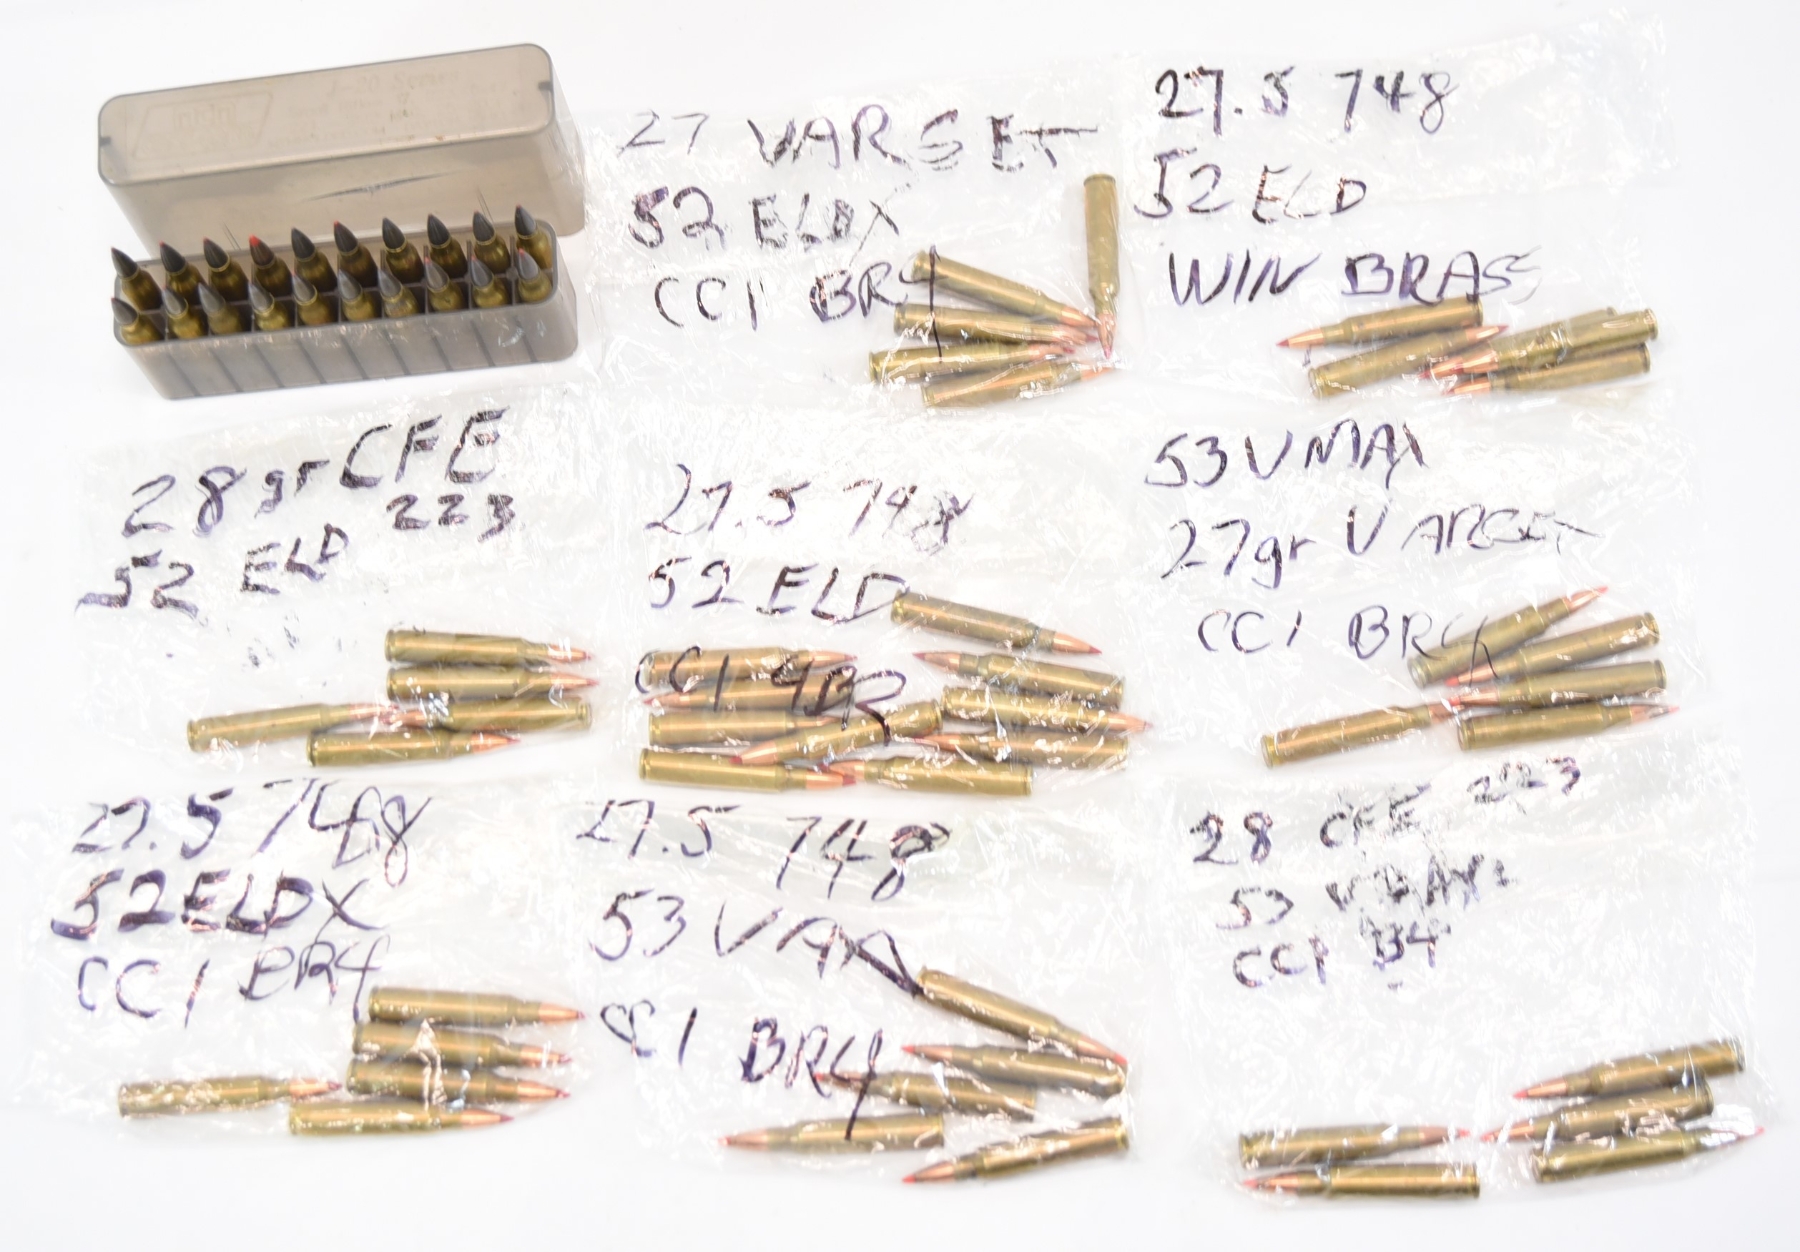 20 Series
27 VARGET
52 ELDX
CCI BR4
27.5 748
52 ELD
WIN BRASS
28gr CFE
223
52 ELD
27.5 748
52 ELD
CCI 4BR
53 VMAX
27gr VARGET
CCI BR4
27.5 748
52 ELDX
CCI BR4
27.5 748
53 VAR
CCI BR4
28 CFE 223
53 VMAX
CCI B4